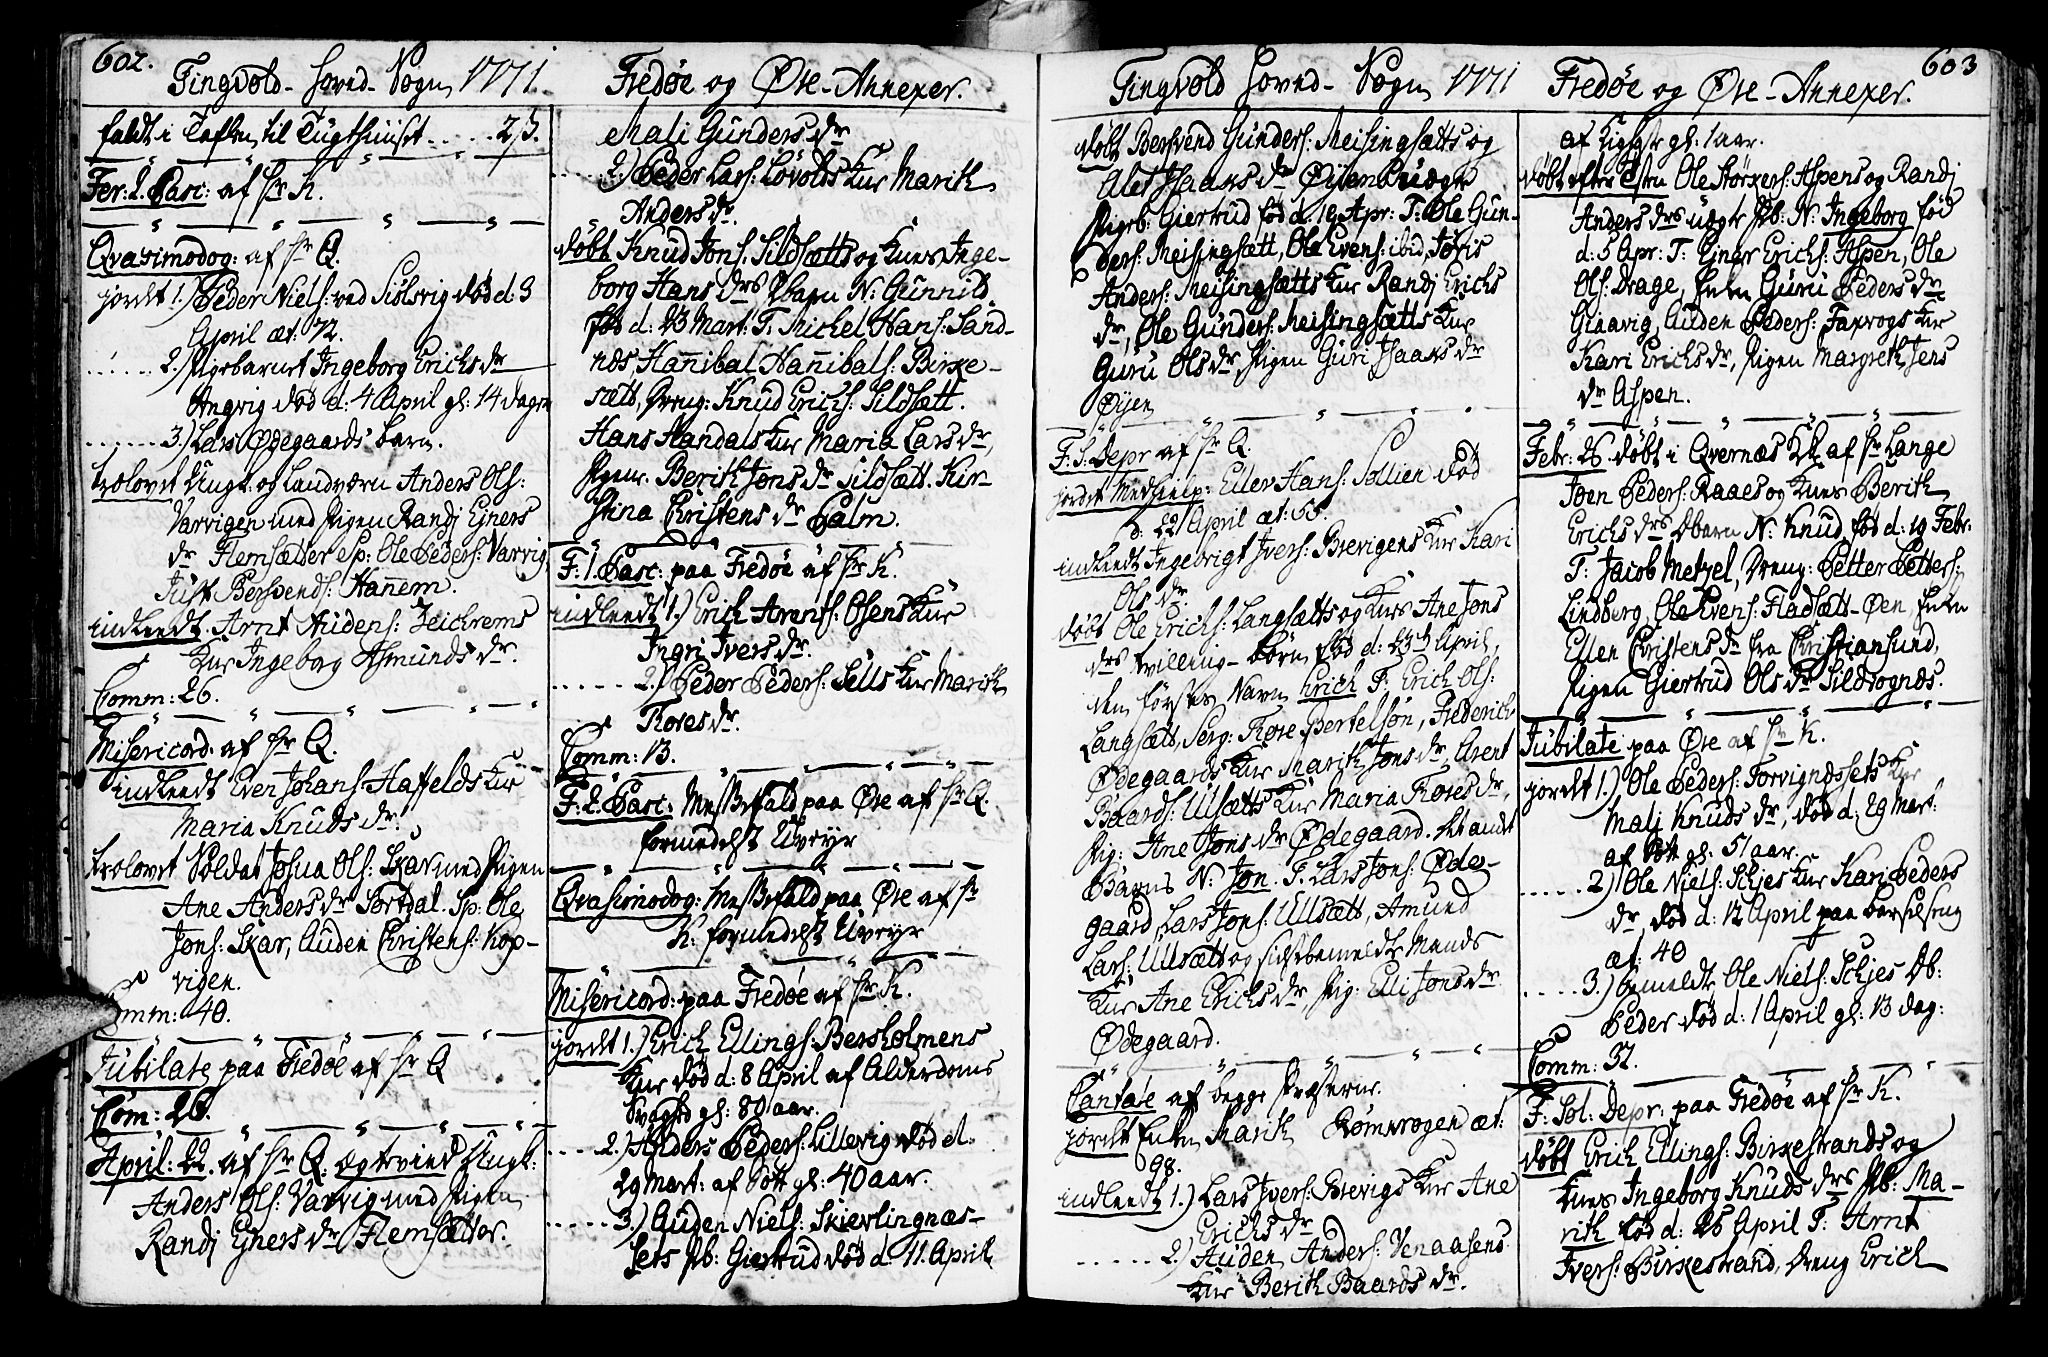 602.
Tingvold-hoved-Sogn 1771
faldt i Taflen til Tugthuuset .... 2 ß.
Fer: 2. Pasc: af Hr K.
Qvasimodog: af Hr Q.
jordet 1.) Peder Niels: ved Siølsvig død d: 3
April æt: 72.
...... 2.) Pigebarnet Ingeborg Erichs dr
Angvig død d: 4 April gl: 14 dage
...... 3.) Lars Ødegaards barn.
trolovet Ungk: og Landværn Anders Ols:
Varvigen med Pigen Randj Ejners
dr Flemsætter Sp: Ole Peders: Varvig,
Just Bersvends: Hañem.
indleedt Arnt Audens: Zeichrems
Kne Ingeborg Asmunds dr.
Comm: 26.
Misericord: af Hr Q.
indleedt Even Johans: Haffelds Kne
Maria Knuds dr.
trolovet Soldat Josua Ols: Skar med Pigen
Ane Anders dr Tortdal. Sp: Ole
Jons: Skar, Auden Christens: Kop-
vigen.
Comm: 40.
Jubilate paa Fredøe af Hr Q
Com: 26.
April: 22. af Hr Q. ægtevied Ungk:
Anders Ols: Varvig med Pigen
Randj Ejners dr Flemsætter.
Fredøe og Øre-Annexer.
Mali Gunders dr
.... 2.) Peder Lars: Løvolds Kne Marith
Anders dr.
døbt Knud Jons: Sildsætts og Knes Inge-
borg Hans drs Dbarn N: Gunnild.
fød d: 23 Mart: T. Michel Hans: Sand-
nes Hañibal Hañibals: Birke-
sætt, Dreng: Knud Erichs: Sildsætt.
Hans Handals Kne Maria Lars dr,
Pigerne Berith Jons dr Sildsætt. Kir-
stina Christens dr Palm.
F. 1. Pasc: paa Fredøe af Hr K.
indleedt 1.) Erich Arents: Olsens Kne
Ingri Ivers dr.
...... 2.) Peder Peders: Sells Kne Marith
Tores dr.
Comm: 13.
F: 2. Pasc: Messefald paa Øre af Hr Q.
formedelst Uveyr
Qvasimodog: Messefald paa Øre af Hr
K: formedelst Uveyr
Misericord: paa Fredøe af Hr K.
jordet 1.) Erich Ellings: Bersholmens
Kne død d: 8 April af Alderdoms
Svaghed gl: 80 aar.
.... 2.) Anders Peders: Lillevig død d.
29 Mart: af Sott gl: 40 aar.
..... 3.) Auden Niels: Skierlingnæs-
sets Pb: Giertrud død d. 11. April
Tingvold hoved-Sogn 1771
døbt Bersvend Gunders: Meisingsætts og
Alet Isaaks dr Øyen Uægte
Pigeb: Giertrud fød d. 19 Apr: T: Ole Gun-
ders: Meisingsætt, Ole Evens: ibid, Joris
Anders: Meisingsætts Kne Randj Erichs
dr, Ole Gunders: Meisingsætts Kne
Guru Ols dr, Pigen Guri Isaaks dr
Øyen
F: S: Depr af Hr Q.
jordet Medhielp: Ellev Hans: Sollien død
d: 22 April æt: 55.
indleedt Ingebrigt Ivers: Brevigens Kne Kari
Ols dr.
døbt Ole Erichs: Langsætts og Knes Ane Jons
drs tvilling-børn fød d: 23de April,
den førstes Navn Erich T: Erich Ols:
Langsætt, Serg: Tore Bertelsøn, Frederich
Ødegaards Kne Marith Jons dr, Arent
Baards: Ulsætts Kne Maria Tores dr,
Pig: Ane Jons dr Ødegaard. det andet
Barns N: Jon. T: Lars Jons: Øde-
gaard, Lars Jons: Ullsætt, Amund
Lars: Ullsætt og sidstbemeldte Mands
Kne Ane Erichs dr Pig: Elli Jons dr
Ødegaard.
Cantate af begge Præsterne.
jordet Enken Marith Romsrogen æt:
98.
indleedt 1.) Lars Ivers: Brevigs Kne Ane
Erichs dr
...... 2.) Auden Anders: Venaasens
Kne Berith Baards dr.
603
Fredøe og Øre-Annexer.
af gl: 1 aar.
døbt efter Ole Størkers: Aspens og Randj
Anders drs uægte Pb: N: Ingeborg fød
d: 5 Apr: T: Ejner Erichs: Aspen, Ole
Ols: Drage, Enken Guru Peders dr
Gaavig, Auden Peders: Faxvogs Kne
Kari Erichs dr, Pigen Margreth Jens
dr Aspen.
Febr: 26. døbt i Qvernæs Kk af Hr Lange
Joen Peders: Raaes og Knes Berith
Erichs drs Dbarn N: Knud fød d: 19 Febr:
T: Jacob Metzel, Dreng: Petter Petters:
Lindberg, Ole Evens: Fladsætt-Øen, Enken
Ellen Christens dr fra Christiansund,
Pigen Giertrud Ols dr Sildvognæs.
Jubilate paa Øre af Hr K.
jordet 1.) Ole Peders: Torvignæssets Kne
Mali Knuds dr, død d: 29 Mart:
af Sott gl: 51 aar.
..... 2.) Ole Niels: Schjes Kne Kari Peders
dr død d: 12 April paa Barselseng
æt: 40
..... 3.) bemeldte Ole Niels: Schjes Db:
Peder død d: 1 April gl: 13 dag:
Comm: 37.
F: Sol: Depr: paa Fredøe af Hr K.
døbt Erich Ellings: Birkestrands og
Knes Ingeborg Knuds drs Pb: Ma-
rith fød d: 26 April T: Arnt
Ivers: Birkestrand, Dreng Erich